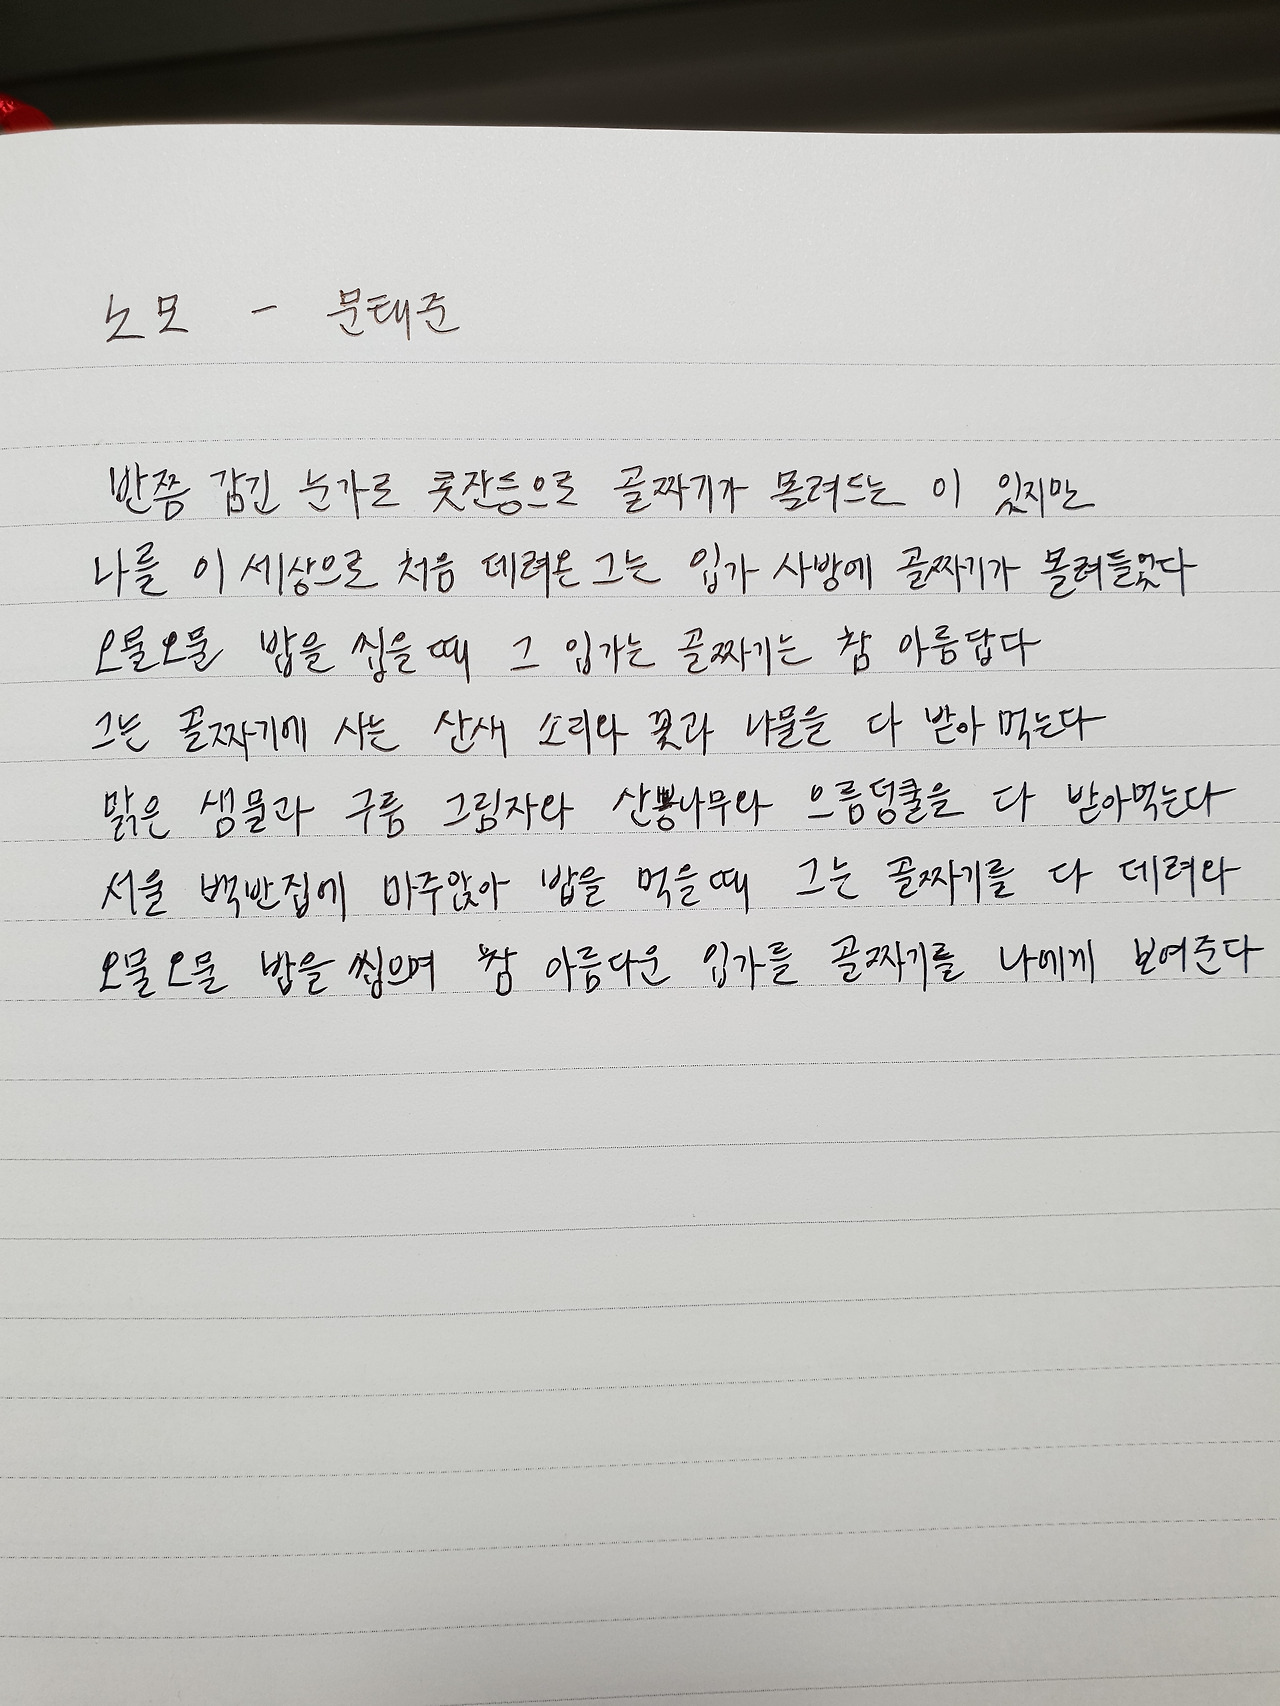 노모 - 문태준
반쯤 감긴 눈가로 콧잔등으로 골짜기가 몰려드는 이 있지만
나를 이 세상으로 처음 데려온 그는 입가 사방에 골짜기가 몰려들었다
오물오물 밥을 씹을 때 그 입가는 골짜기는 참 아름답다
그는 골짜기에 사는 산새 소리와 꽃과 나물을 다 받아 먹는다
맑은 샘물과 구름 그림자와 산뽕나무와 으름덩쿨을 다 받아먹는다
서울 백반집에 마주앉아 밥을 먹을 때 그는 골짜기를 다 데려와
오물오물 밥을 씹으며 참 아름다운 입가를 골짜기를 나에게 보여준다